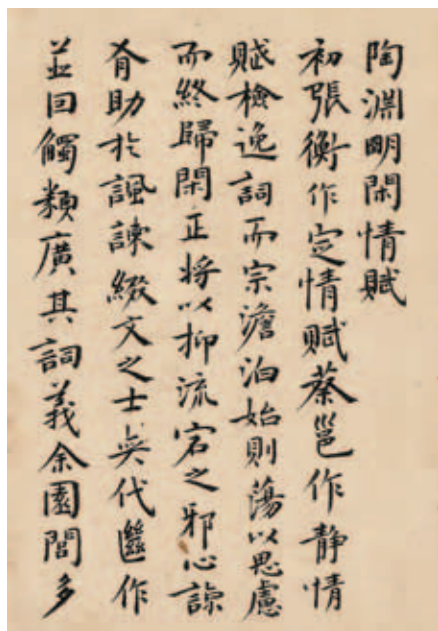 陶淵明閑情賦
初張衡作定情賦蔡邕作静情
賦檢逸詞而宗澹泊始則蕩以思慮
而終歸閑正將以抑流宕之邪心諒
有助於諷諫綴文之士奕代繼作
並因觸類廣其詞義余園閭多